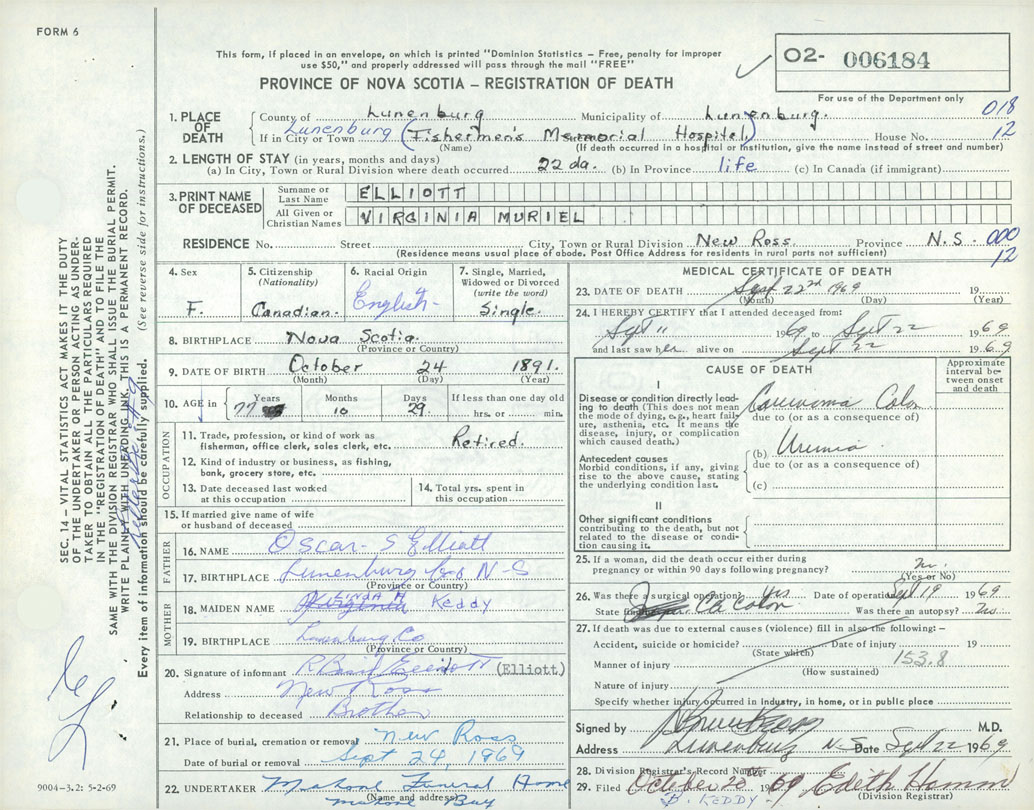 FORM 6
This form, if placed in an envelope, on which is printed "Dominion Statistics – Free, penalty for improper
use $50," and properly addressed will pass through the mail "FREE"
PROVINCE OF NOVA SCOTIA – REGISTRATION OF DEATH
O2- 006184
For use of the Department only
018
12
1. PLACE OF DEATH County of Lunenburg Municipality of Lunenburg.
If in City or Town Lunenburg (Fishermen's Memorial Hospital) House No.
(Name) (If death occurred in a hospital or institution, give the name instead of street and number)
2. LENGTH OF STAY (in years, months and days)
(a) In City, Town or Rural Division where death occurred 22 da. (b) In Province life (c) In Canada (if immigrant)
3. PRINT NAME OF DECEASED Surname or Last Name ELLIOTT
All Given or Christian Names VIRGINIA MURIEL
RESIDENCE No. Street City, Town or Rural Division New Ross. Province N.S. 000
12
(Residence means usual place of abode. Post Office Address for residents in rural parts not sufficient)
4. Sex
F.
5. Citizenship
(Nationality)
Canadian.
6. Racial Origin
English
7. Single, Married,
Widowed or Divorced
(write the word)
Single.
8. BIRTHPLACE Nova Scotia.
(Province or Country)
9. DATE OF BIRTH October 24 1891.
(Month) (Day) (Year)
10. AGE in Years Months Days If less than one day old
77 10 29 hrs. or min.
OCCUPATION
11. Trade, profession, or kind of work as
fisherman, office clerk, sales clerk, etc. Retired.
12. Kind of industry or business, as fishing,
bank, grocery store, etc.
13. Date deceased last worked
at this occupation
14. Total yrs. spent in
this occupation
15. If married give name of wife
or husband of deceased
FATHER
16. NAME Oscar S Elliott
17. BIRTHPLACE Lunenburg Co N-S
(Province or Country)
MOTHER
LINDA M
18. MAIDEN NAME Virginia Keddy
19. BIRTHPLACE Lunenburg Co
(Province or Country)
20. Signature of informant (Elliott)
Address New Ross
Relationship to deceased Brother
21. Place of burial, cremation or removal New Ross
Date of burial or removal Sept 24, 1969
22. UNDERTAKER Mahone Funeral Home
(Name and address)
Mahone Bay
MEDICAL CERTIFICATE OF DEATH
23. DATE OF DEATH Sept 22nd 1969 19
(Month) (Day) (Year)
24. I HEREBY CERTIFY that I attended deceased from:
Sept 11 1969 to Sept 22 1969
and last saw her alive on Sept 22 1969
CAUSE OF DEATH
Approximate
interval be-
tween onset
and death
I
Disease or condition directly lead-
ing to death (This does not mean
the mode of dying, e.g., heart fail-
ure, asthenia, etc. It means the
disease, injury, or complication
which caused death.)
Carcinoma Colon
due to (or as a consequence of)
Antecedent causes
Morbid conditions, if any, giving
rise to the above cause, stating
the underlying condition last.
(b) Uremia
due to (or as a consequence of)
(c)
II
Other significant conditions
contributing to the death, but not
related to the disease or condi-
tion causing it.
25. If a woman, did the death occur either during
pregnancy or within 90 days following pregnancy? no.
(Yes or No)
26. Was there a surgical operation? Yes Date of operation Sept 19 1969
State findings Ca Colon Was there an autopsy? No
27. If death was due to external causes (violence) fill in also the following: –
Accident, suicide or homicide? Date of injury 19
(State which)
Manner of injury 153.8
(How sustained)
Nature of injury
Specify whether injury occurred in industry, in home, or in public place
Signed by M.D.
Address Lunenburg NS Date Sept 22 1969
28. Division Registrar's Record Number
29. Filed October 20th 1969 Edith Hamm
(Division Registrar)
B. KEDDY
SEC. 14 – VITAL STATISTICS ACT MAKES IT THE DUTY
OF THE UNDERTAKER OR PERSON ACTING AS UNDER-
TAKER TO OBTAIN ALL THE PARTICULARS REQUIRED
IN THE "REGISTRATION OF DEATH" AND TO FILE THE
SAME WITH THE DIVISION REGISTRAR WHO SHALL ISSUE THE BURIAL PERMIT.
WRITE PLAINLY WITH UNFADING INK. THIS IS A PERMANENT RECORD.
Every item of information should be carefully supplied. (See reverse side for instructions.)
9004-3.2: 5-2-69